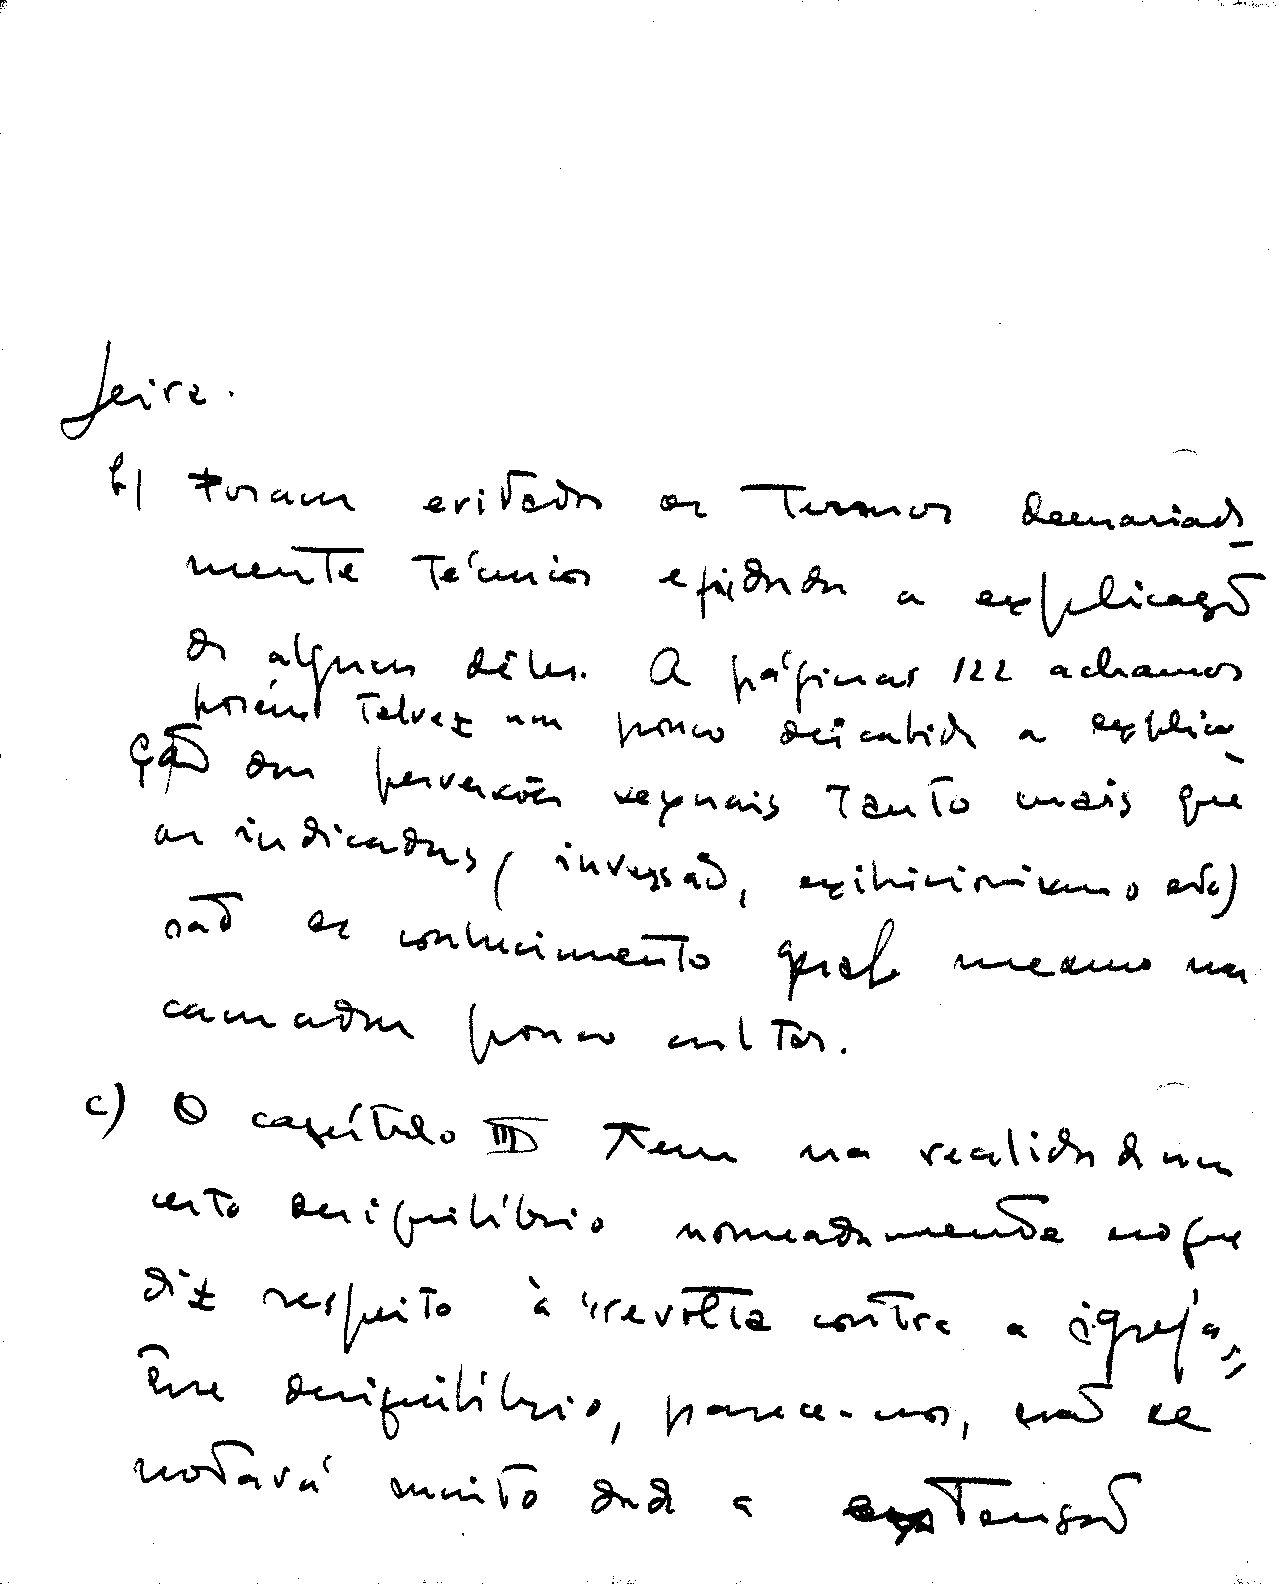 feira.
b) Foram evitados os termos demasiada-
mente técnicos e pedida a explicação
de alguns dêles. A páginas 122 achamos
porém talvez um pouco descabida a explica-
ção das perversões sexuais tanto mais que
as indicadas, (inversão, exibicionismo etc)
são de conhecimento geral mesmo nas
camadas pouco cultas.
c) O capítulo III tem na realidade um
certo desiquilíbrio nomeadamente no que
diz respeito à "revolta contra a igreja".
Êsse desiquilíbrio, parece-nos, não se
notará muito dada a extensão